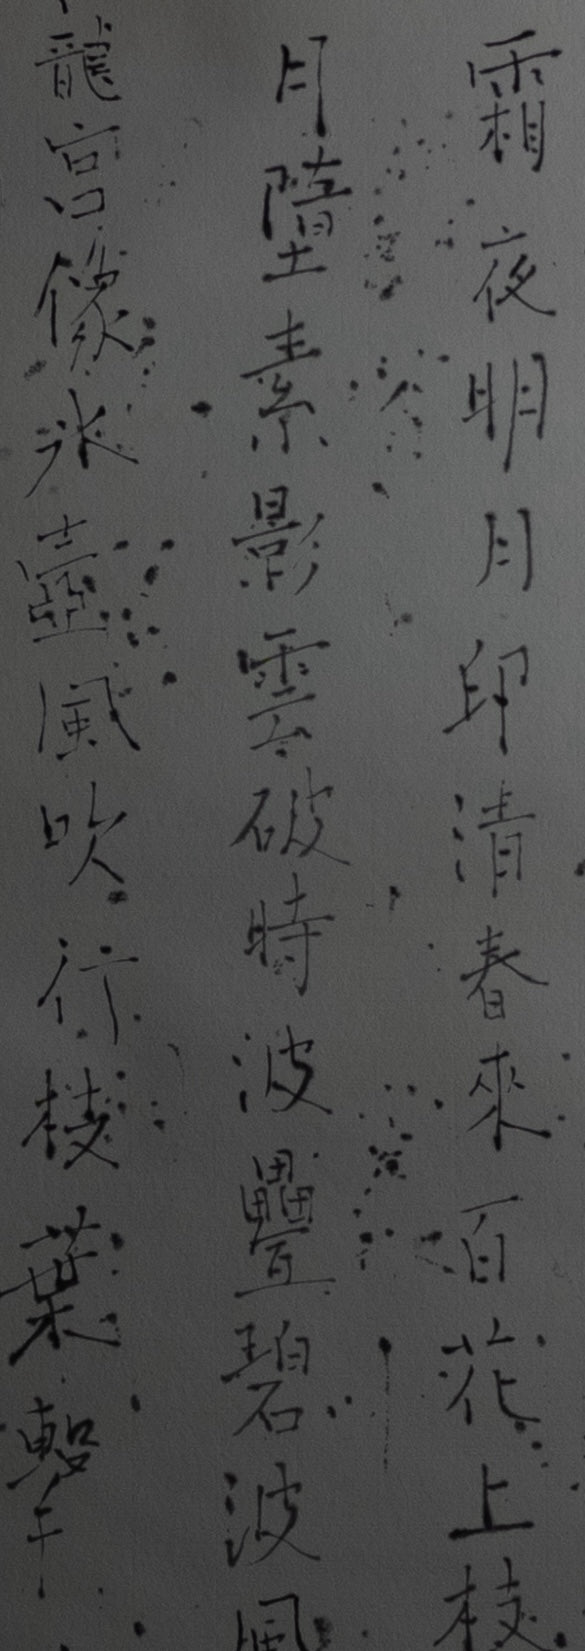 霜夜明月印清春來百花上枝
月墮素影雲破時波疊碧波風
龍宮像冰壺風吹行棱葉